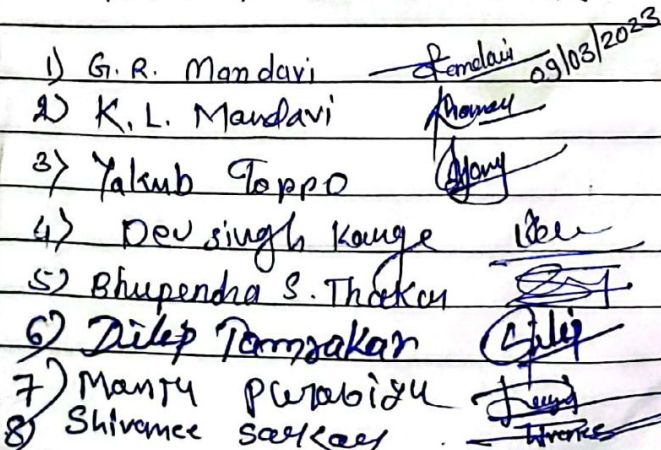 1) G. R. Mandavi 09/03/2023
2) K. L. Mandavi
3) Yakub Toppo
4) Dev singh Kange Dev
5) Bhupendra S. Thakur
6) Dilep Tamrakar Dilip
7) Manju
8) Shivanee Sarkar